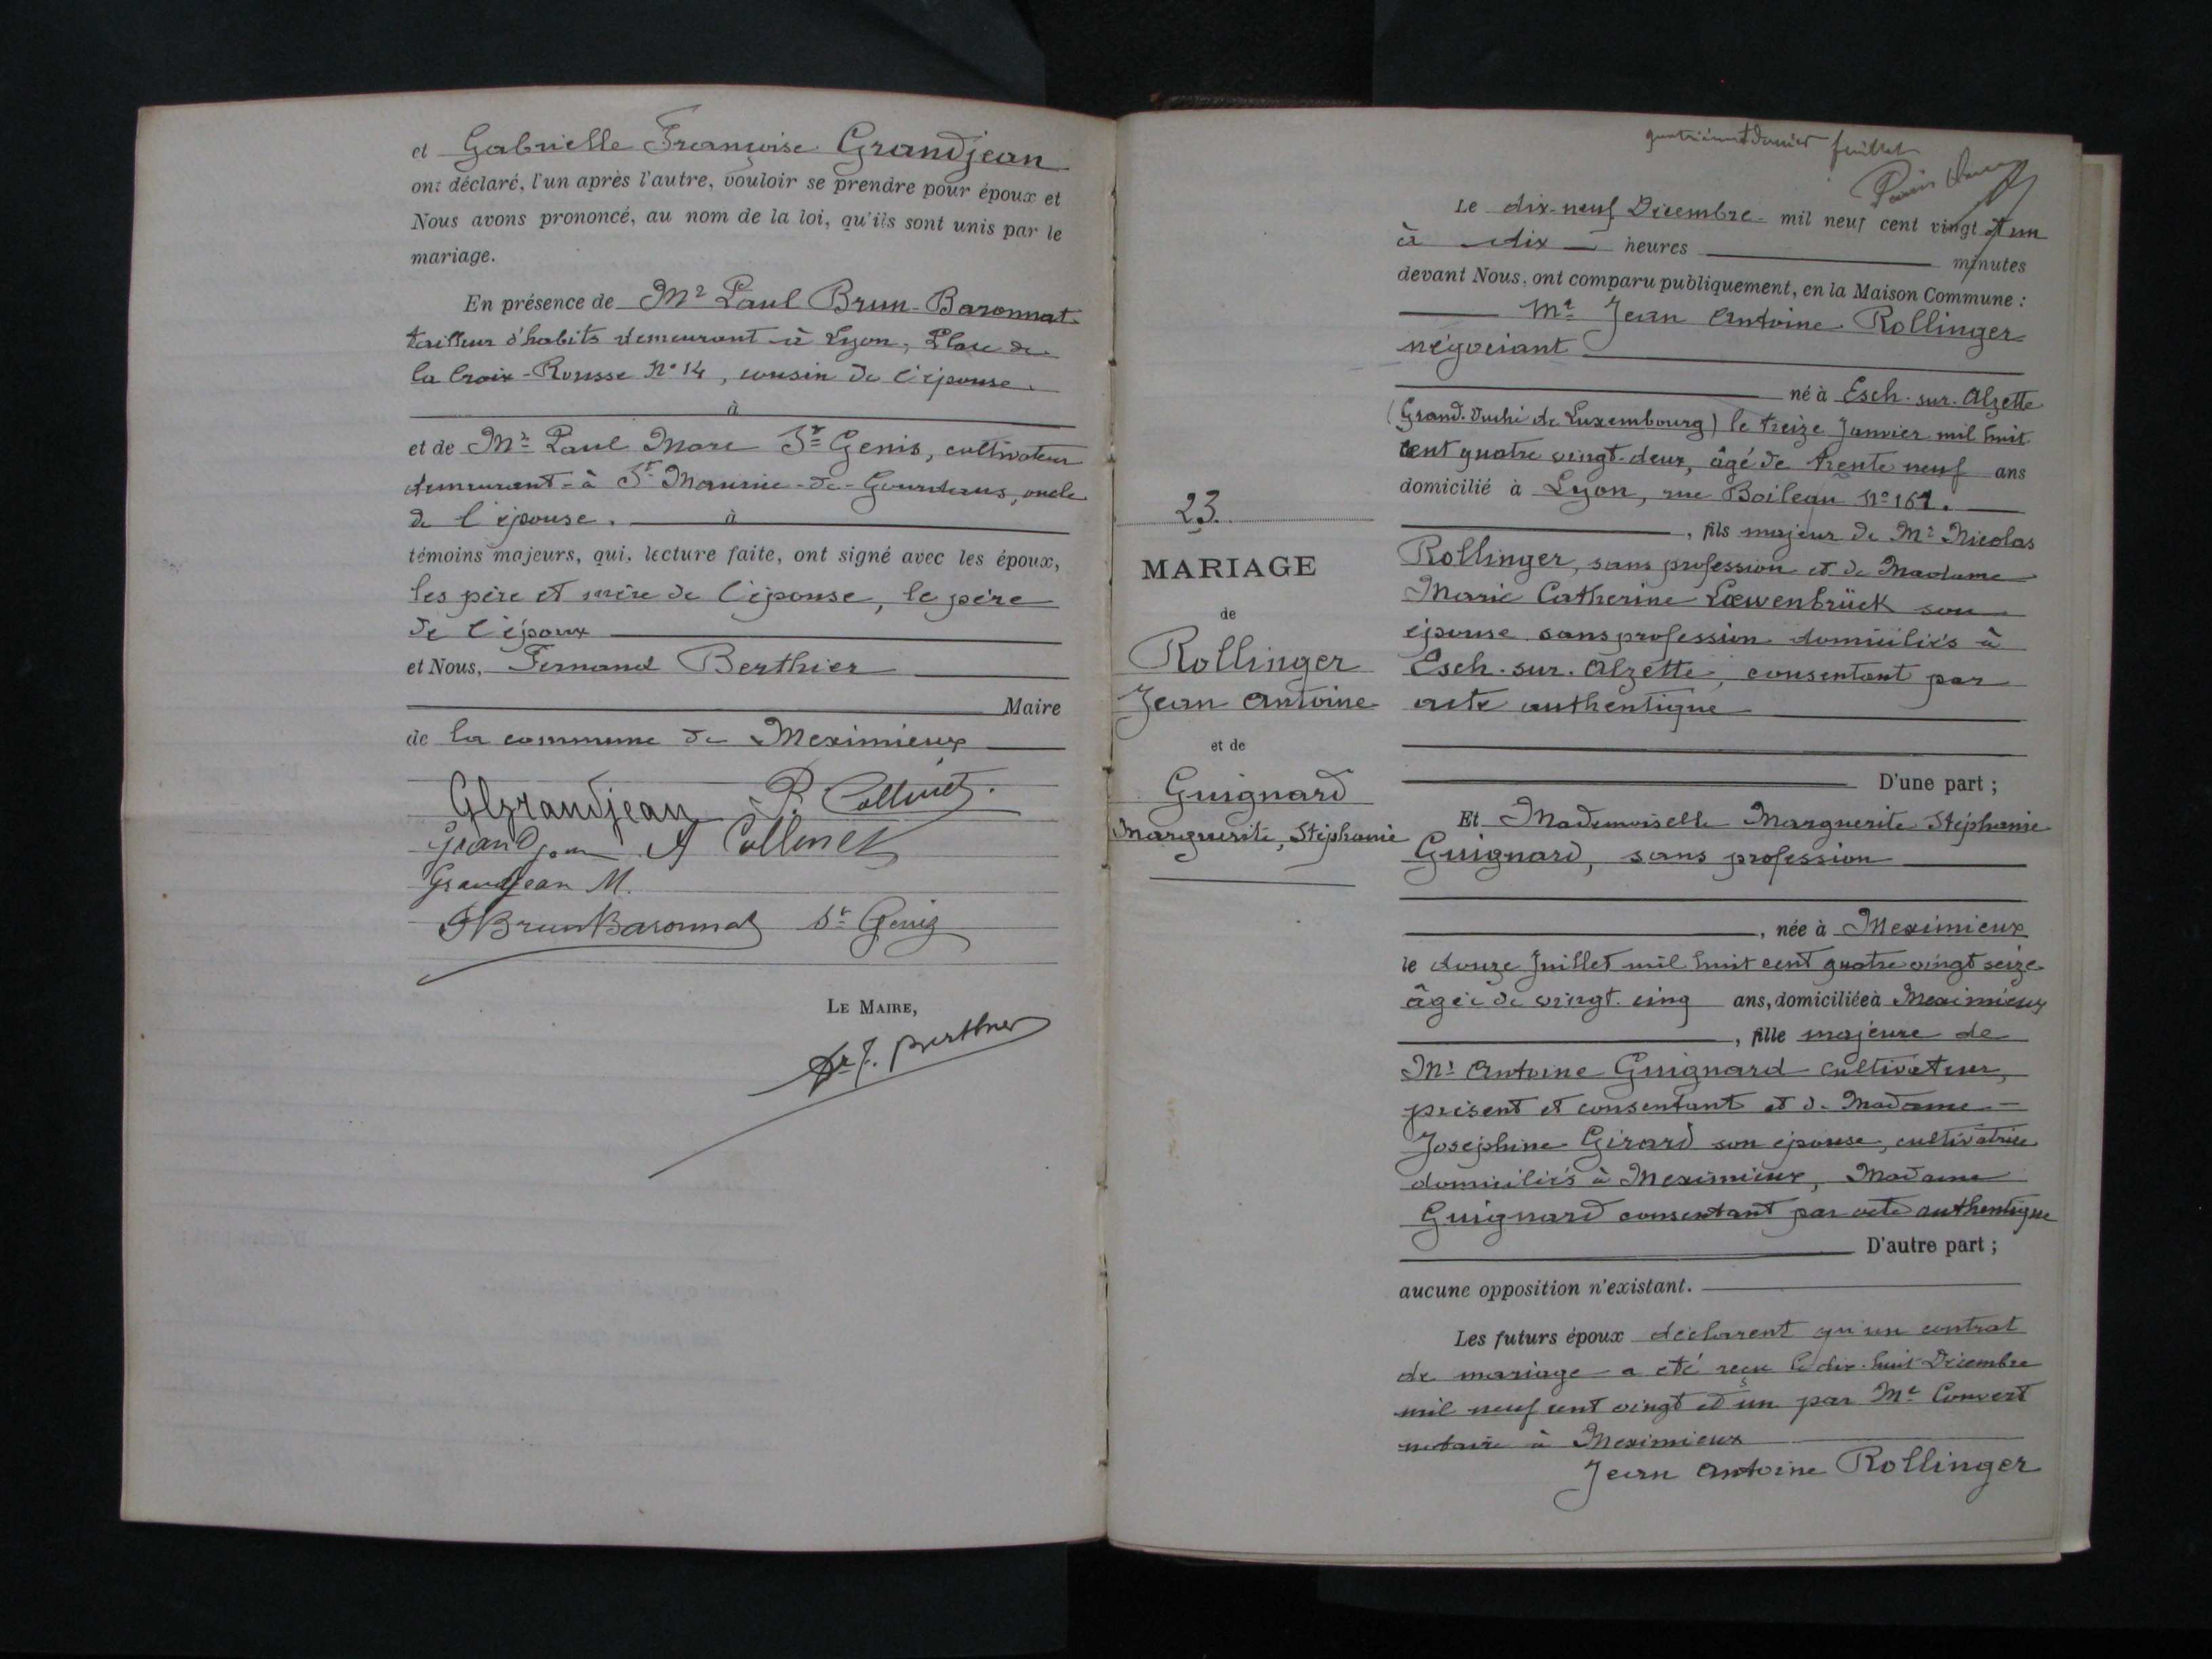 et Gabrielle Françoise Grandjean
ont déclaré, l'un après l'autre, vouloir se prendre pour époux et
Nous avons prononcé, au nom de la loi, qu'ils sont unis par le
mariage.
En présence de Mr Paul Brun-Baronnat
tailleur d'habits demeurant à Lyon, Place de
la Croix-Rousse No 14, cousin de l'épouse.
à
et de Mr Paul Marc St Genis, cultivateur
demeurant à St Maurice-de-Gourdans, oncle
de l'épouse. à
témoins majeurs, qui, lecture faite, ont signé avec les époux,
les père et mère de l'épouse, le père
de l'époux
et Nous, Fernand Berthier
Maire
de la commune de Meximieux
G Grandjean P. Collinet
Grandjean A Collinet
Grandjean M.
P Brun Baronnat St Genis
LE MAIRE,
Dr F. Berthier
quatrième et dernier feuillet
Le dix-neuf Décembre mil neuf cent vingt et un
à dix heures minutes
devant Nous, ont comparu publiquement, en la Maison Commune :
Mr Jean Antoine Rollinger
négociant
né à Esch-sur-Alzette
(Grand-Duché de Luxembourg) le treize Janvier mil huit
cent quatre vingt-deux, âgé de trente neuf ans
domicilié à Lyon, rue Boileau No 161.
, fils majeur de Mr Nicolas
Rollinger, sans profession et de Madame
Marie Catherine Lœwenbrück son
épouse sans profession domiciliés à
Esch-sur-Alzette, consentant par
acte authentique
D'une part ;
Et Mademoiselle Marguerite Stéphanie
Guignard, sans profession
, née à Meximieux
le douze Juillet mil huit cent quatre vingt seize
âgée de vingt-cinq ans, domiciliée à Meximieux
, fille majeure de
Mr Antoine Guignard cultivateur,
présent et consentant et de Madame
Joséphine Girard son épouse, cultivatrice
domiciliés à Meximieux, Madame
Guignard consentant par acte authentique
D'autre part ;
aucune opposition n'existant.
Les futurs époux déclarent qu'un contrat
de mariage a été reçu le dix-huit Décembre
mil neuf cent vingt et un par Me Convert
notaire à Meximieux
Jean Antoine Rollinger
23
MARIAGE
de
Rollinger
Jean Antoine
et de
Guignard
Marguerite, Stéphanie